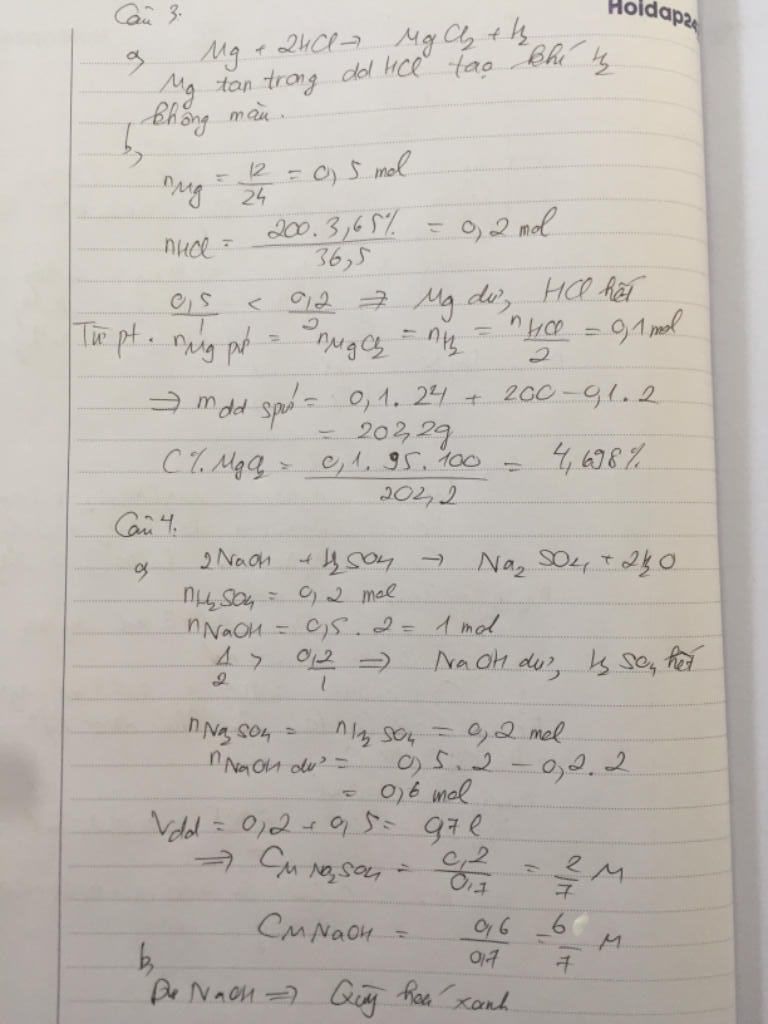 Hoidap24
Câu 3:
a, Mg + 2HCl → MgCl2 + H2
Mg tan trong dd HCl tạo khí H2
không màu.
b,
nMg = 12/24 = 0,5 mol
nHCl = 200.3,65%/36,5 = 0,2 mol
0,5/1 < 0,2/2 ⇒ Mg dư, HCl hết
Từ pt. nMg pứ = nMgCl2 = nH2 = nHCl/2 = 0,1 mol
⇒ mdd spứ = 0,1.24 + 200 - 0,1.2
= 202,2g
C%MgCl2 = 0,1.95.100/202,2 = 4,698%
Câu 4.
a, 2NaOH + H2SO4 → Na2SO4 + 2H2O
nH2SO4 = 0,2 mol
nNaOH = 0,5.2 = 1 mol
1/2 > 0,2/1 ⇒ NaOH dư, H2SO4 hết
nNa2SO4 = nH2SO4 = 0,2 mol
nNaOH dư = 0,5.2 - 0,2.2
= 0,6 mol
Vdd = 0,2 + 0,5 = 0,7l
⇒ CM Na2SO4 = 0,2/0,7 = 2/7 M
CM NaOH = 0,6/0,7 = 6/7 M
b,
Dư NaOH ⇒ Quỳ hoá xanh